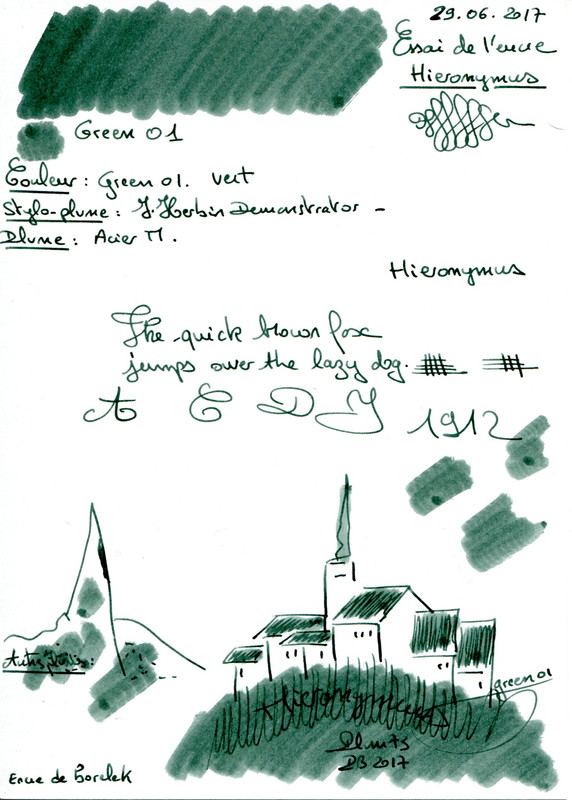 29.06.2017
Essai de l'encre
Hieronymus
Green 01
Couleur : Green 01. vert
Stylo-plume : J.Herbin Demonstrator -
Plume : Acier M.
Hieronymus
The quick brown fox
jumps over the lazy dog.
A E D J 1912
Autres Tests :
green 01
DB 2017
Encre de Borelek